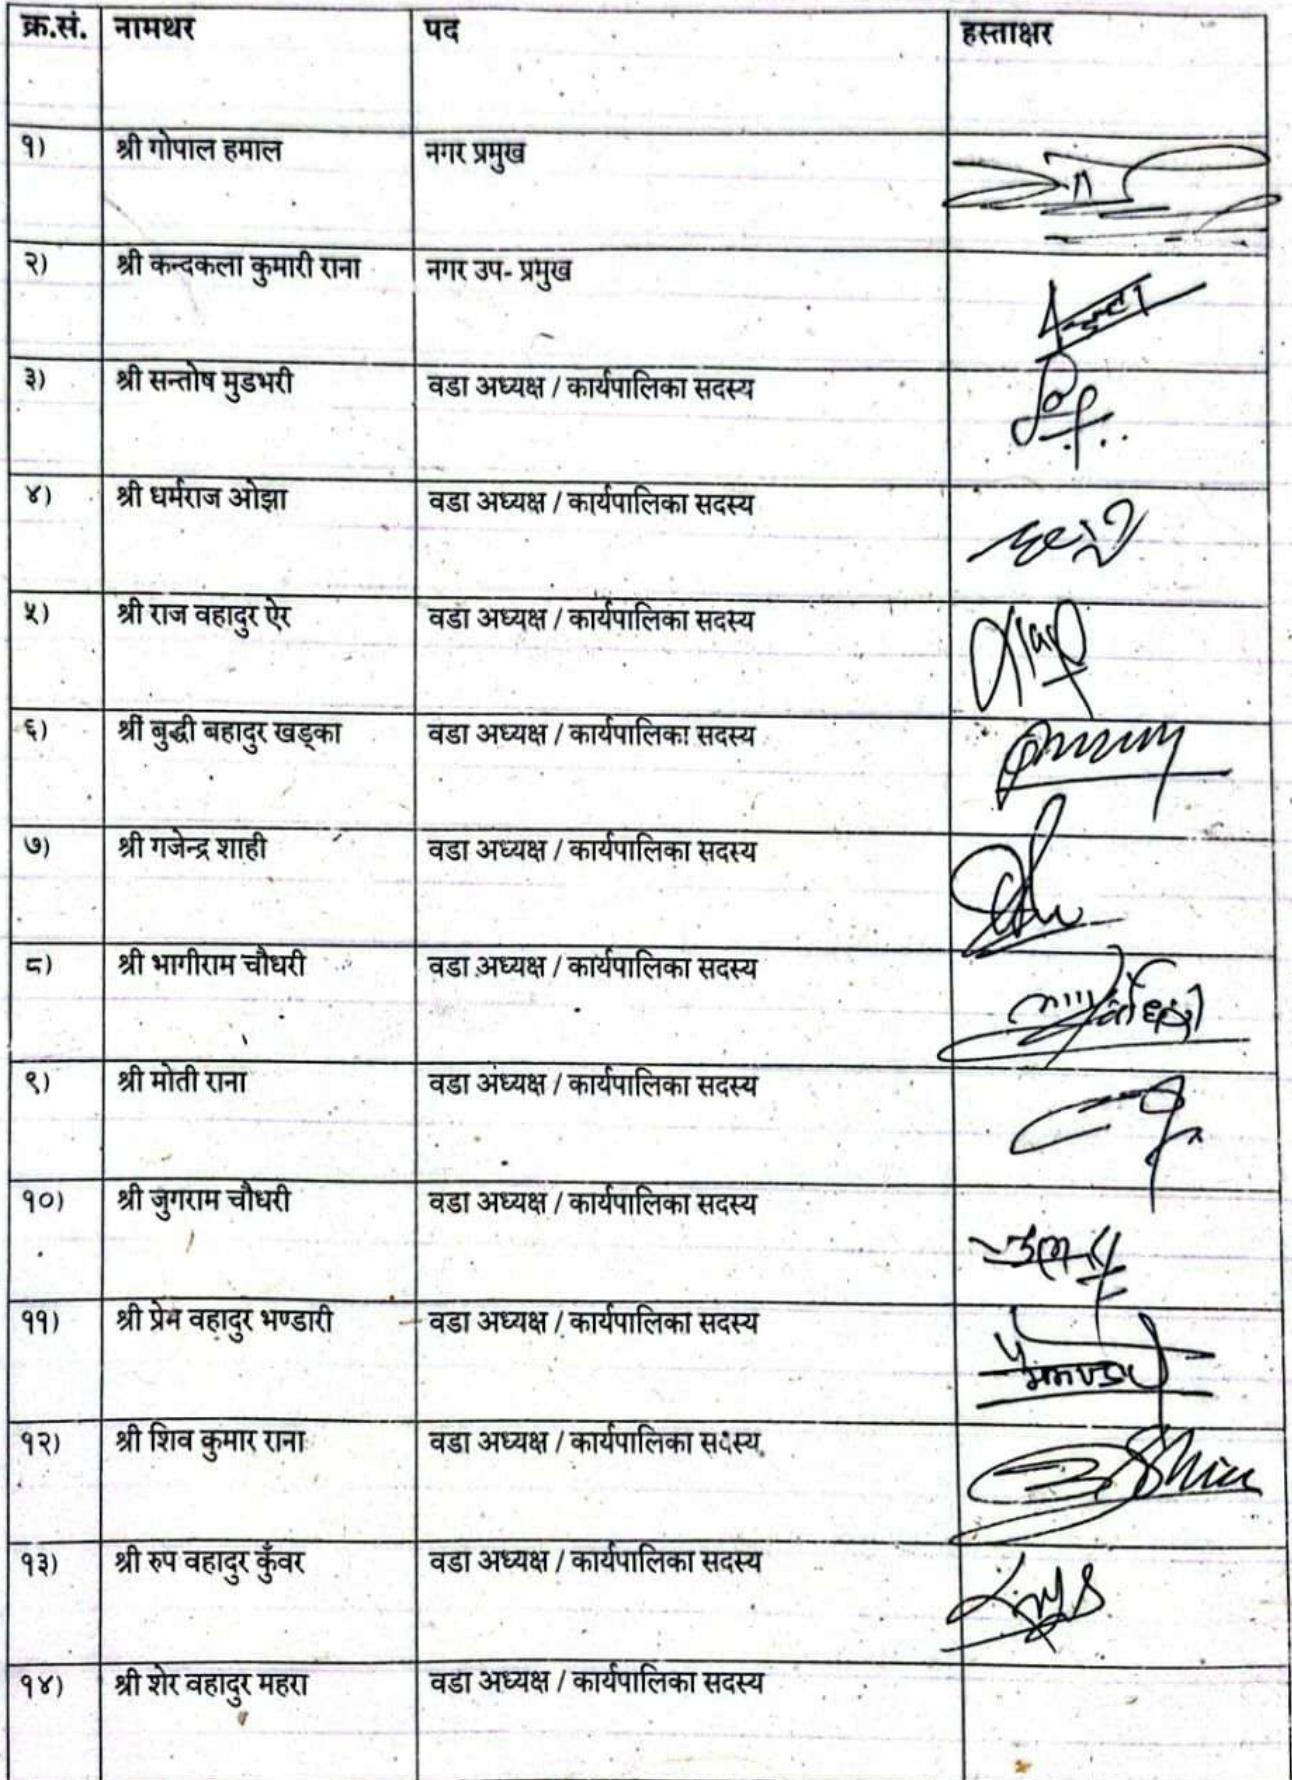 क्र.सं. नामथर पद हस्ताक्षर
१) श्री गोपाल हमाल नगर प्रमुख
२) श्री कन्दकला कुमारी राना नगर उप- प्रमुख
३) श्री सन्तोष मुडभरी वडा अध्यक्ष / कार्यपालिका सदस्य
४) श्री धर्मराज ओझा वडा अध्यक्ष / कार्यपालिका सदस्य
५) श्री राज वहादुर ऐर वडा अध्यक्ष / कार्यपालिका सदस्य
६) श्री बुद्धी बहादुर खड्का वडा अध्यक्ष / कार्यपालिका सदस्य
७) श्री गजेन्द्र शाही वडा अध्यक्ष / कार्यपालिका सदस्य
८) श्री भागीराम चौधरी वडा अध्यक्ष / कार्यपालिका सदस्य
९) श्री मोती राना वडा अध्यक्ष / कार्यपालिका सदस्य
१०) श्री जुगराम चौधरी वडा अध्यक्ष / कार्यपालिका सदस्य
११) श्री प्रेम वहादुर भण्डारी वडा अध्यक्ष / कार्यपालिका सदस्य
१२) श्री शिव कुमार राना वडा अध्यक्ष / कार्यपालिका सदस्य
१३) श्री रुप वहादुर कुँवर वडा अध्यक्ष / कार्यपालिका सदस्य
१४) श्री शेर वहादुर महरा वडा अध्यक्ष / कार्यपालिका सदस्य